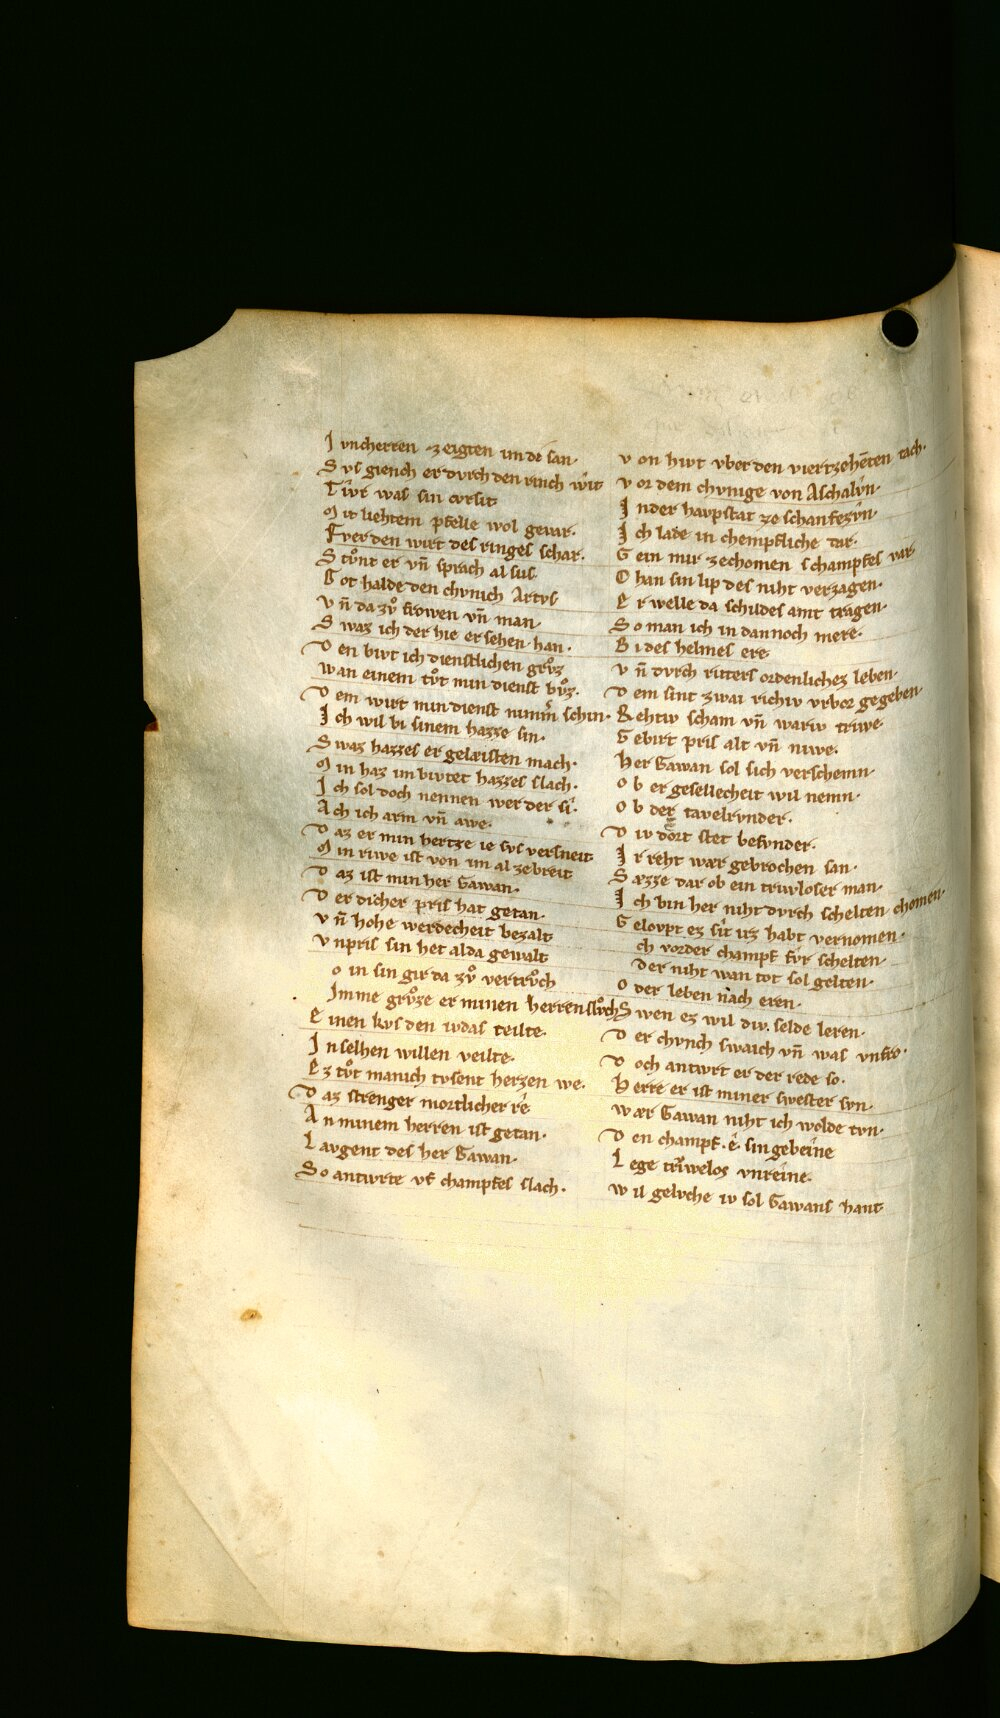 J vncherren zeigten im de san·
S vs giench er dvrch den rinch wît
T ivr was sin cvrsit
M it liehtem pfelle wol gevar·
F vr den wirt des ringes schar·
S tůnt er vn̄ sprach al sus
G ot halde den chvnich Artvs
V n̄ da zů frowen vn̄ man
S waz ich der hie ersehen han·
D en bivt ich dienstlichen grůz
W an einem tůt min dienst bůz·
D em wirt min dienst nimm̄ schin·
J ch wil bi sinem hazze sin·
S waz hazzes er gelæisten mach·
M in haz im bivtet hazzes slach·
J ch sol doch nennen wer der si·
A ch ich arm vn̄ awe·
D az er min hertze ie svs versneit
M in riwe ist von im al ze breit
D az ist min her Gawan·
D er dicher pris hat getan·
V n̄ hohe werdecheit bezalt
V npris sin het alda gewalt
o in sin gir da zů vertrůch
Jmme grůze er minen herren slůch
E inen kvs den ivdas teilte·
J n selhen willen veilte·
E z tůt manich tvsent herzen we·
D az strenger mortlicher rê
A n minem herren ist getan·
L augent des her Gawan·
S o antwrte vf champfes slach·
V on hivt vber den viertzehēten tach·
V or dem chvnige von Aschalvn·
J n der havpstat ze schanfezvn·
J ch lade in chempfliche dar·
G ein mir ze chomen schampfes var
C han sin lip des niht verzagen·
E r welle da schildes amt tragen·
S o man ich in dannoch mere·
B i des helmes ere
V n̄ dvrch ritters ordenlichez leben·
D em sint zwai richiv vrbor gegeben·
R ehtiv scham vn̄ wariv triwe
G ebirt pris alt vn̄ niwe·
H er Gawan sol sich verschemn·
O b er geselleheit wil nemn·
O b der tavelrvnder·
D iv dort stet besvnder·
J r reht wær gebrochen san·
S æzze dar ob ein triwloser man·
J ch bin her niht dvrch schelten chomen·
G elovpt ez sît irz habt vernomen·
ch vorder champf fvr schelten·
der niht wan tot sol gelten·
O der leben nach eren·
S wen ez wil div selde leren·
D er chvnch swaich vn̄ was vnfro·
D och antwrt er der rede so·
H erre er ist miner swester svn·
W ær Gawan niht ich wolde tvn·
D en champf· ê· sin gebeine
L ege triwelos vnreine·
W il gelvche iv sol Gawans hant